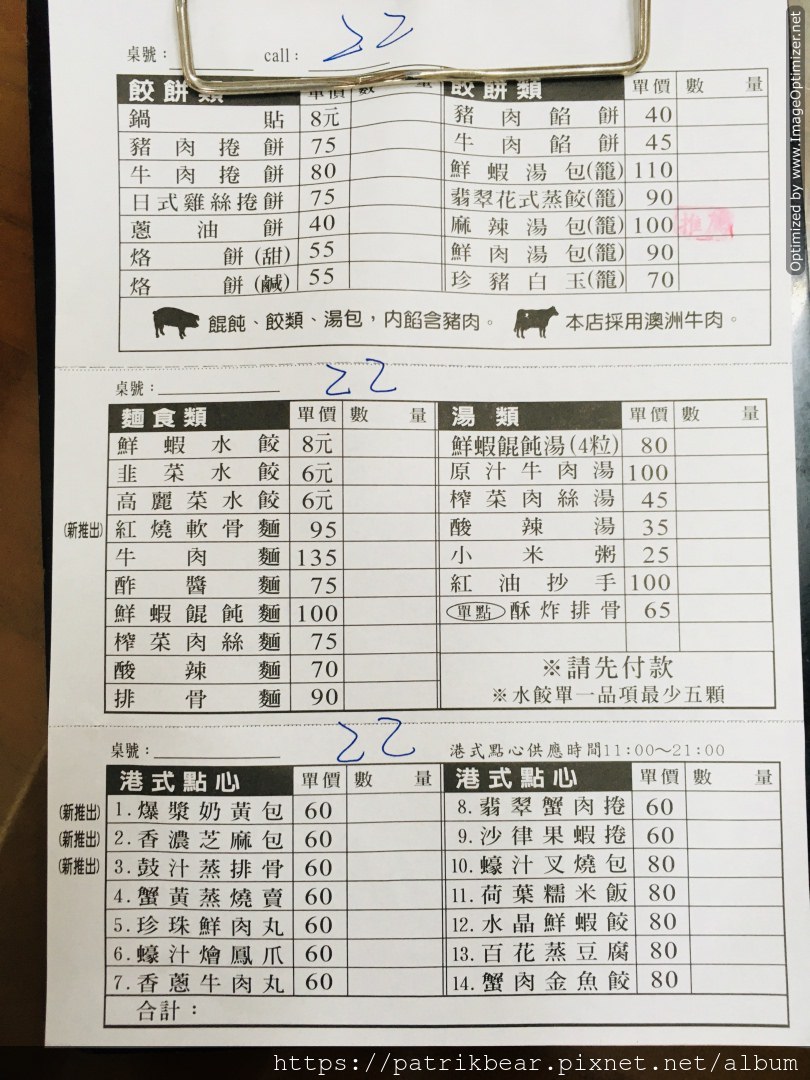 桌號： call： 22
餃餅類 單價 數 量 餃餅類 單價 數 量
鍋貼 8元 豬肉餡餅 40
豬肉捲餅 75 牛肉餡餅 45
牛肉捲餅 80 鮮蝦湯包(籠) 110
日式雞絲捲餅 75 翡翠花式蒸餃(籠) 90
蔥油餅 40 麻辣湯包(籠) 100 推薦
烙餅(甜) 55 鮮肉湯包(籠) 90
烙餅(鹹) 55 珍豬白玉(籠) 70
餛飩、餃類、湯包，內餡含豬肉。 本店採用澳洲牛肉。
桌號： 22
麵食類 單價 數 量 湯類 單價 數 量
鮮蝦水餃 8元 鮮蝦餛飩湯(4粒) 80
韭菜水餃 6元 原汁牛肉湯 100
高麗菜水餃 6元 榨菜肉絲湯 45
(新推出) 紅燒軟骨麵 95 酸辣湯 35
牛肉麵 135 小米粥 25
酢醬麵 75 紅油抄手 100
鮮蝦餛飩麵 100 單點 酥炸排骨 65
榨菜肉絲麵 75
酸辣麵 70 ※請先付款
排骨麵 90 ※水餃單一品項最少五顆
桌號： 22 港式點心供應時間11:00～21:00
港式點心 單價 數 量 港式點心 單價 數 量
(新推出) 1.爆漿奶黃包 60 8.翡翠蟹肉捲 60
(新推出) 2.香濃芝麻包 60 9.沙律果蝦捲 60
(新推出) 3.鼓汁蒸排骨 60 10.蠔汁叉燒包 80
4.蟹黃蒸燒賣 60 11.荷葉糯米飯 80
5.珍珠鮮肉丸 60 12.水晶鮮蝦餃 80
6.蠔汁燴鳳爪 60 13.百花蒸豆腐 80
7.香蔥牛肉丸 60 14.蟹肉金魚餃 80
合計：
Optimized by www.ImageOptimizer.net
https://patrikbear.pixnet.net/album